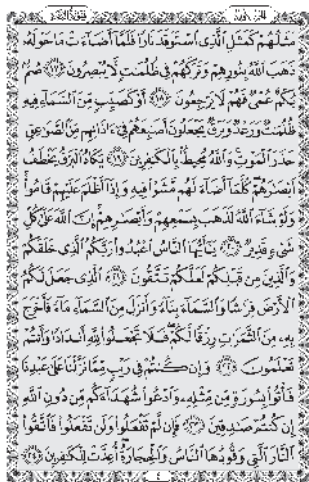 الجزء الأول
سورة البقرة
مَثَلُهُمْ كَمَثَلِ ٱلَّذِى ٱسْتَوْقَدَ نَارًا فَلَمَّآ أَضَآءَتْ مَا حَوْلَهُۥ
ذَهَبَ ٱللَّهُ بِنُورِهِمْ وَتَرَكَهُمْ فِى ظُلُمَٰتٍ لَّا يُبْصِرُونَ ١٧ صُمٌّۢ
بُكْمٌ عُمْىٌ فَهُمْ لَا يَرْجِعُونَ ١٨ أَوْ كَصَيِّبٍ مِّنَ ٱلسَّمَآءِ فِيهِ
ظُلُمَٰتٌ وَرَعْدٌ وَبَرْقٌ يَجْعَلُونَ أَصَٰبِعَهُمْ فِىٓ ءَاذَانِهِم مِّنَ ٱلصَّوَٰعِقِ
حَذَرَ ٱلْمَوْتِ وَٱللَّهُ مُحِيطٌۢ بِٱلْكَٰفِرِينَ ١٩ يَكَادُ ٱلْبَرْقُ يَخْطَفُ
أَبْصَٰرَهُمْ كُلَّمَآ أَضَآءَ لَهُم مَّشَوْا۟ فِيهِ وَإِذَآ أَظْلَمَ عَلَيْهِمْ قَامُوا۟
وَلَوْ شَآءَ ٱللَّهُ لَذَهَبَ بِسَمْعِهِمْ وَأَبْصَٰرِهِمْ إِنَّ ٱللَّهَ عَلَىٰ كُلِّ
شَىْءٍ قَدِيرٌ ٢٠ يَٰٓأَيُّهَا ٱلنَّاسُ ٱعْبُدُوا۟ رَبَّكُمُ ٱلَّذِى خَلَقَكُمْ
وَٱلَّذِينَ مِن قَبْلِكُمْ لَعَلَّكُمْ تَتَّقُونَ ٢١ ٱلَّذِى جَعَلَ لَكُمُ
ٱلْأَرْضَ فِرَٰشًا وَٱلسَّمَآءَ بِنَآءً وَأَنزَلَ مِنَ ٱلسَّمَآءِ مَآءً فَأَخْرَجَ
بِهِۦ مِنَ ٱلثَّمَرَٰتِ رِزْقًا لَّكُمْ فَلَا تَجْعَلُوا۟ لِلَّهِ أَندَادًا وَأَنتُمْ
تَعْلَمُونَ ٢٢ وَإِن كُنتُمْ فِى رَيْبٍ مِّمَّا نَزَّلْنَا عَلَىٰ عَبْدِنَا
فَأْتُوا۟ بِسُورَةٍ مِّن مِّثْلِهِۦ وَٱدْعُوا۟ شُهَدَآءَكُم مِّن دُونِ ٱللَّهِ
إِن كُنتُمْ صَٰدِقِينَ ٢٣ فَإِن لَّمْ تَفْعَلُوا۟ وَلَن تَفْعَلُوا۟ فَٱتَّقُوا۟
ٱلنَّارَ ٱلَّتِى وَقُودُهَا ٱلنَّاسُ وَٱلْحِجَارَةُ أُعِدَّتْ لِلْكَٰفِرِينَ ٢٤
٤